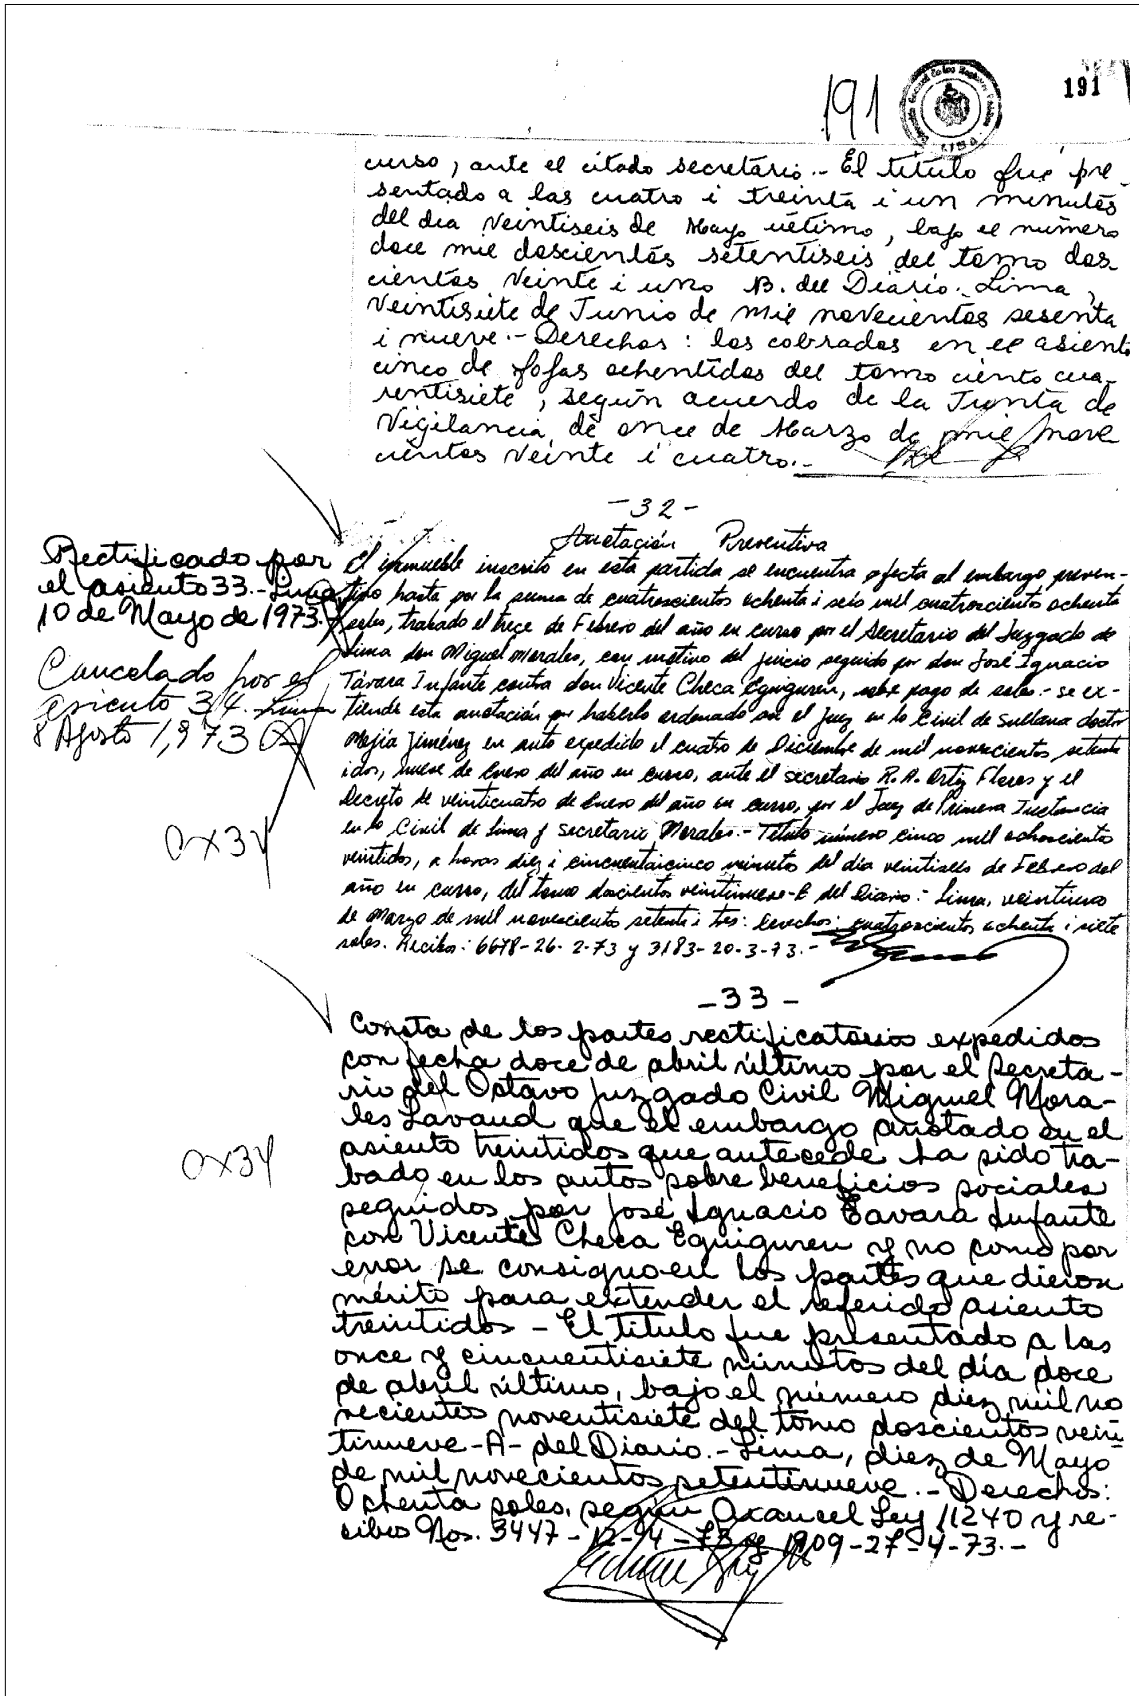 191
191
curso, ante el citado secretario.- El título fué pre-
sentado a las cuatro i treinta i un minutos
del dia veintiseis de Mayo último, bajo el número
doce mil doscientos setentiseis del tomo dos-
cientos veinte i uno B. del Diário.- Lima,
veintisiete de Junio de mil novecientos sesenta
i nueve.- Derechos: los cobrados en el asiento
cinco de fojas ochentidos del tomo ciento cua-
rentisiete, según acuerdo de la Junta de
Vigilancia, de once de Marzo de mil nove
cientos veinte i cuatro.-
-32-
Anotación Preventiva
El inmueble inscrito en esta partida se encuentra afecta al embargo preven-
tivo hasta por la suma de cuatroscientos ochenta i seis mil cuatroscientos ochenta
soles, trabado el trece de Febrero del año en curso por el Secretario del Juzgado de
Lima don Miguel Morales, con motivo del juicio seguido por don José Ignacio
Távara Infante contra don Vicente Checa Eguiguren, sobre pago de soles.- se ex-
tiende esta anotación por haberlo ordenado así el Juez en lo Civil de Sullana doctor
Mejía Jiménez en auto expedido el cuatro de Diciembre de mil novecientos setenta
idos, nueve de Enero del año en curso, ante el secretario R. A. Ortiz Flores y el
Decreto de veinticuatro de Enero del año en curso, por el Juez de Primera Instancia
en lo Civil de Lima y secretario Morales.- Título número cinco mil ochoscientos
veintidos, a horas diez i cincuentaicinco minutos del día veintiseis de Febrero del
año en curso, del tomo doscientos veintinueve-B del Diario:- Lima, veintiuno
de Marzo de mil novecientos setenta i tres: Derechos: cuatroscientos ochenta i siete
soles. Recibos: 6678-26-2-73 y 3183-20-3-73.-
Rectificado por
el asiento 33.- Lima,
10 de Mayo de 1973.
Cancelado por el
asiento 34. Lima
8 Agosto 1,973
-33-
Consta de los partes rectificatorios expedidos
con fecha doce de abril último por el Secreta-
rio del Octavo Juzgado Civil Miguel Mora-
les Lavaud que el embargo anotado en el
asiento treintidos que antecede ha sido tra-
bado en los autos sobre beneficios sociales
seguidos por José Ignacio Tavara Infante
con Vicente Checa Eguiguren y no como por
error se consignó en los partes que dieron
mérito para extender el referido asiento
treintidos - El título fue presentado a las
once y cincuentisiete minutos del día doce
de abril último, bajo el número diez mil no
vecientos noventisiete del tomo doscientos vein
tinueve-A- del Diario.- Lima, diez de Mayo
de mil novecientos setentinueve.- Derechos:
Ochenta soles, según Arancel Ley 11240 y re-
cibos Nos. 3447-12-4-73 y 1909-27-4-73.-